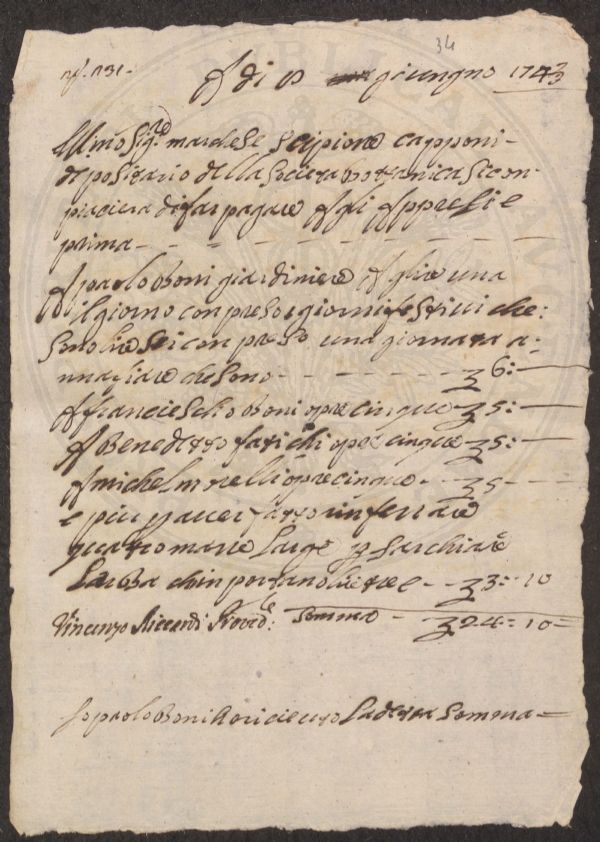 34
nº. 131.
A di 10 giungno 1743
Ill.mo Sig.re marchese Scipione Capponi
depositario della Societa Bottanica Si con
piacera di far pagare A gli Appresi e
prima
A paolo Boni giardiniere A lire una
il giorno con preso i giorni festivi che:
Sono lire Sei con preso una giornata a
nnaffiare che Sono 6:
A franciescho Boni opre cinque 5:
A Benedetto fatichi opre cinque 5:
A michel morelli opre cinque 5
e piu p aver fatto inferrare
quatro marre Large p Sarchiare
Larba chinportano lire tre e 3: 10
Vincenzo Riccardi Proved.e: Somma 24: 10
Io paolo Boni o riceuto La detta Somma